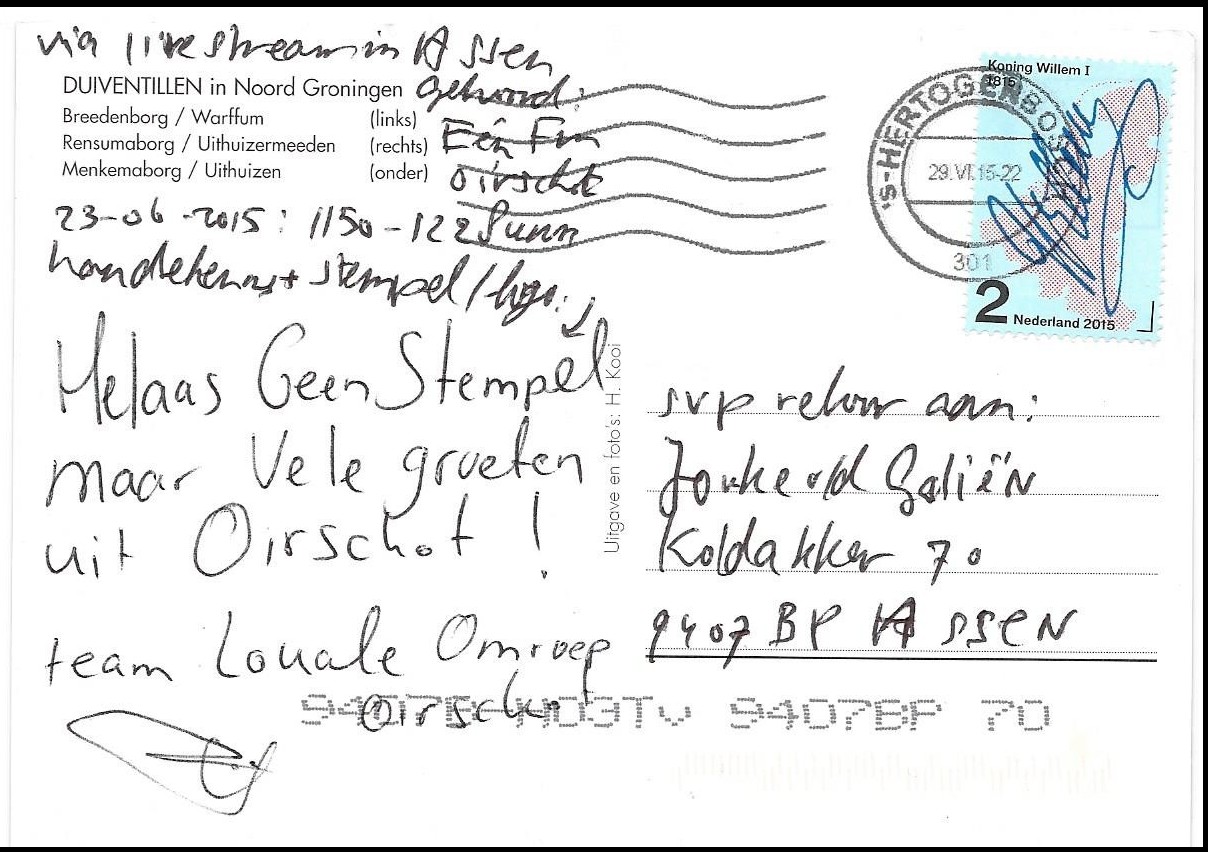 via livestream in Assen
DUIVENTILLEN in Noord Groningen gehoord:
Breedenborg / Warffum (links) Eén Fm
Rensumaborg / Uithuizermeeden (rechts)
Menkemaborg / Uithuizen (onder) oirschot
23-06-2015: 1150-122
stempel /
Helaas Geen Stempel
maar Vele groeten
uit Oirschot!
team Lokale Omroep
Oirschot
Uitgave en foto's: H. Kooi
'S-HERTOGENBOS
29.VI.15-22
301
Koning Willem I
1815
2 Nederland 2015
svp retour aan:
Galiën
Koldakker 70
9407 BP Assen
9407BP 70